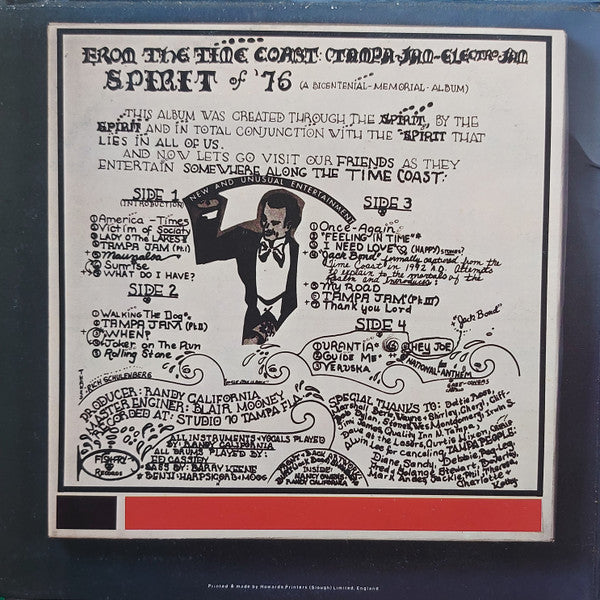 FROM THE TIME COAST: (TAMPA-JAM-ELECTRO-JAM
SPIRIT of '76 (A BICENTENIAL-MEMORIAL-ALBUM)
THIS ALBUM WAS CREATED THROUGH THE SPIRIT, BY THE
SPIRIT AND IN TOTAL CONJUNCTION WITH THE "SPIRIT THAT
LIES IN ALL OF US.
AND NOW LETS GO VISIT OUR FRIENDS AS THEY
ENTERTAIN SOMEWHERE ALONG THE TIME COAST:
NEW AND UNUSUAL ENTERTAINMENT
SIDE 1
(INTRODUCTION)
① America-Times
② Victim of Society
③ LADY O'THE LAKES
④ TAMPA JAM (Pt.I)
⑤ Maunaloa
⑥ Sunrise
⑦ WHAT DO I HAVE?
SIDE 2
① WALKING THE DOG
② TAMPA JAM (Pt.II)
③ WHEN?
④ Joker on The Run
⑤ Rolling Stone
SIDE 3
① Once-Again
② "FEELING IN TIME"
③ I NEED LOVE (HAPPY) STONED?
④ "Jack Bond" formally captured from the
Time Coast in 1992 A.D. Attempts
to explain to the mortals of the
Realm and Introduces:
⑤ MY ROAD
⑥ TAMPA JAM (Pt.III)
⑦ Thank you Lord
SIDE 4
① URANTIA
② GUIDE ME
③ VERUSKA
④ HEY JOE
"Jack Bond"
NATIONAL-ANTHEM
RICH SCHULENBERG
PRODUCER: RANDY CALIFORNIA
MASTER ENGINEER: BLAIR MOONEY
RECORDED AT: STUDIO 70 TAMPA FLA
ALL INSTRUMENTS + VOCALS PLAYED
BY RANDY CALIFORNIA
ALL DRUMS PLAYED BY:
ED CASSIDY
BASS BY: BARRY KEENE
BENJI: HARPSICORD + MOOG
FISH FRY
RECORDS
FRONT + BACK ARTWORK
INSIDE:
NANCY OWENS
RANDY CALIFORNIA
SPECIAL THANKS TO: Dottie Ross,
Marshall Berle, Wayne + Shirley, Cheryl, Cliff,
Bob Dylan, Stones, Wes Montgomery, Irwin S.
Jimi James, Quality Inn N. Tampa, J.
Dave at the Losers, Curtis Nixon, Chris
Lwin Lee for canceling. TAMPA PEOPLE:
Duane, Sandy, Debbie, Peg, Tony
Fred, Solange Stewart, Doctor,
Mark Andes, Jackie Mil, Theresa
Charlotte +
Kathy
Printed & made by Howards Printers (Slough) Limited, England